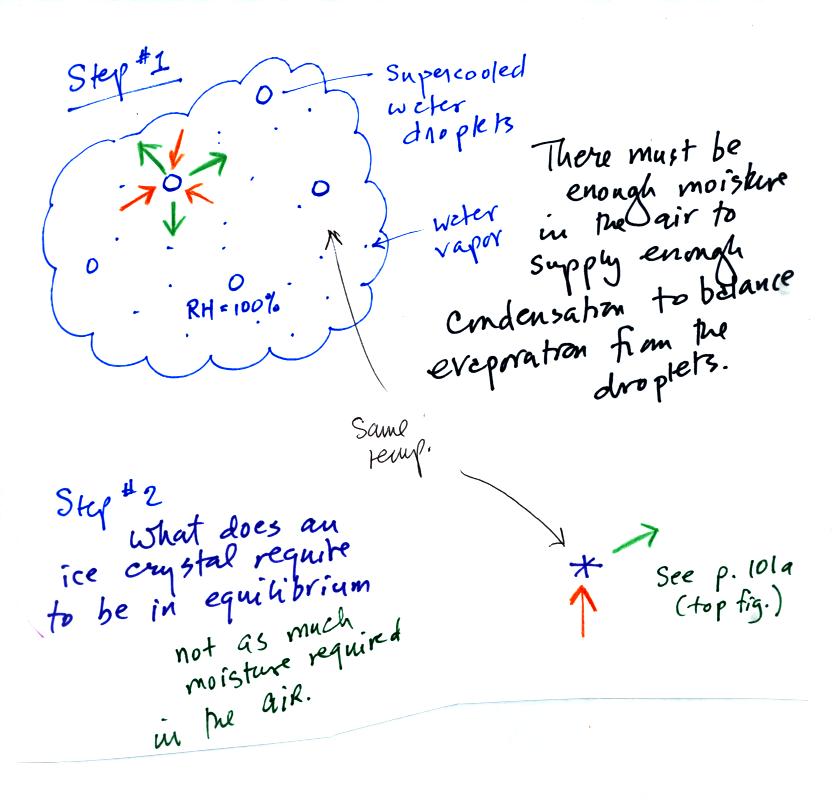 Step #1
Supercooled
water
droplets
There must be
enough moisture
in the air to
supply enough
condensation to balance
evaporation from the
droplets.
water
vapor
RH = 100%
Same
temp.
Step #2
what does an
ice crystal require
to be in equilibrium
not as much
moisture required
in the air.
See p. 101a
(top fig.)